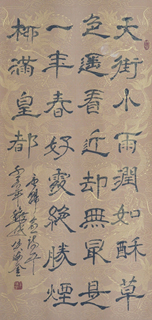 天街小雨潤如酥草
色遥看近却無最是
一年春好處絕勝煙
柳滿皇都